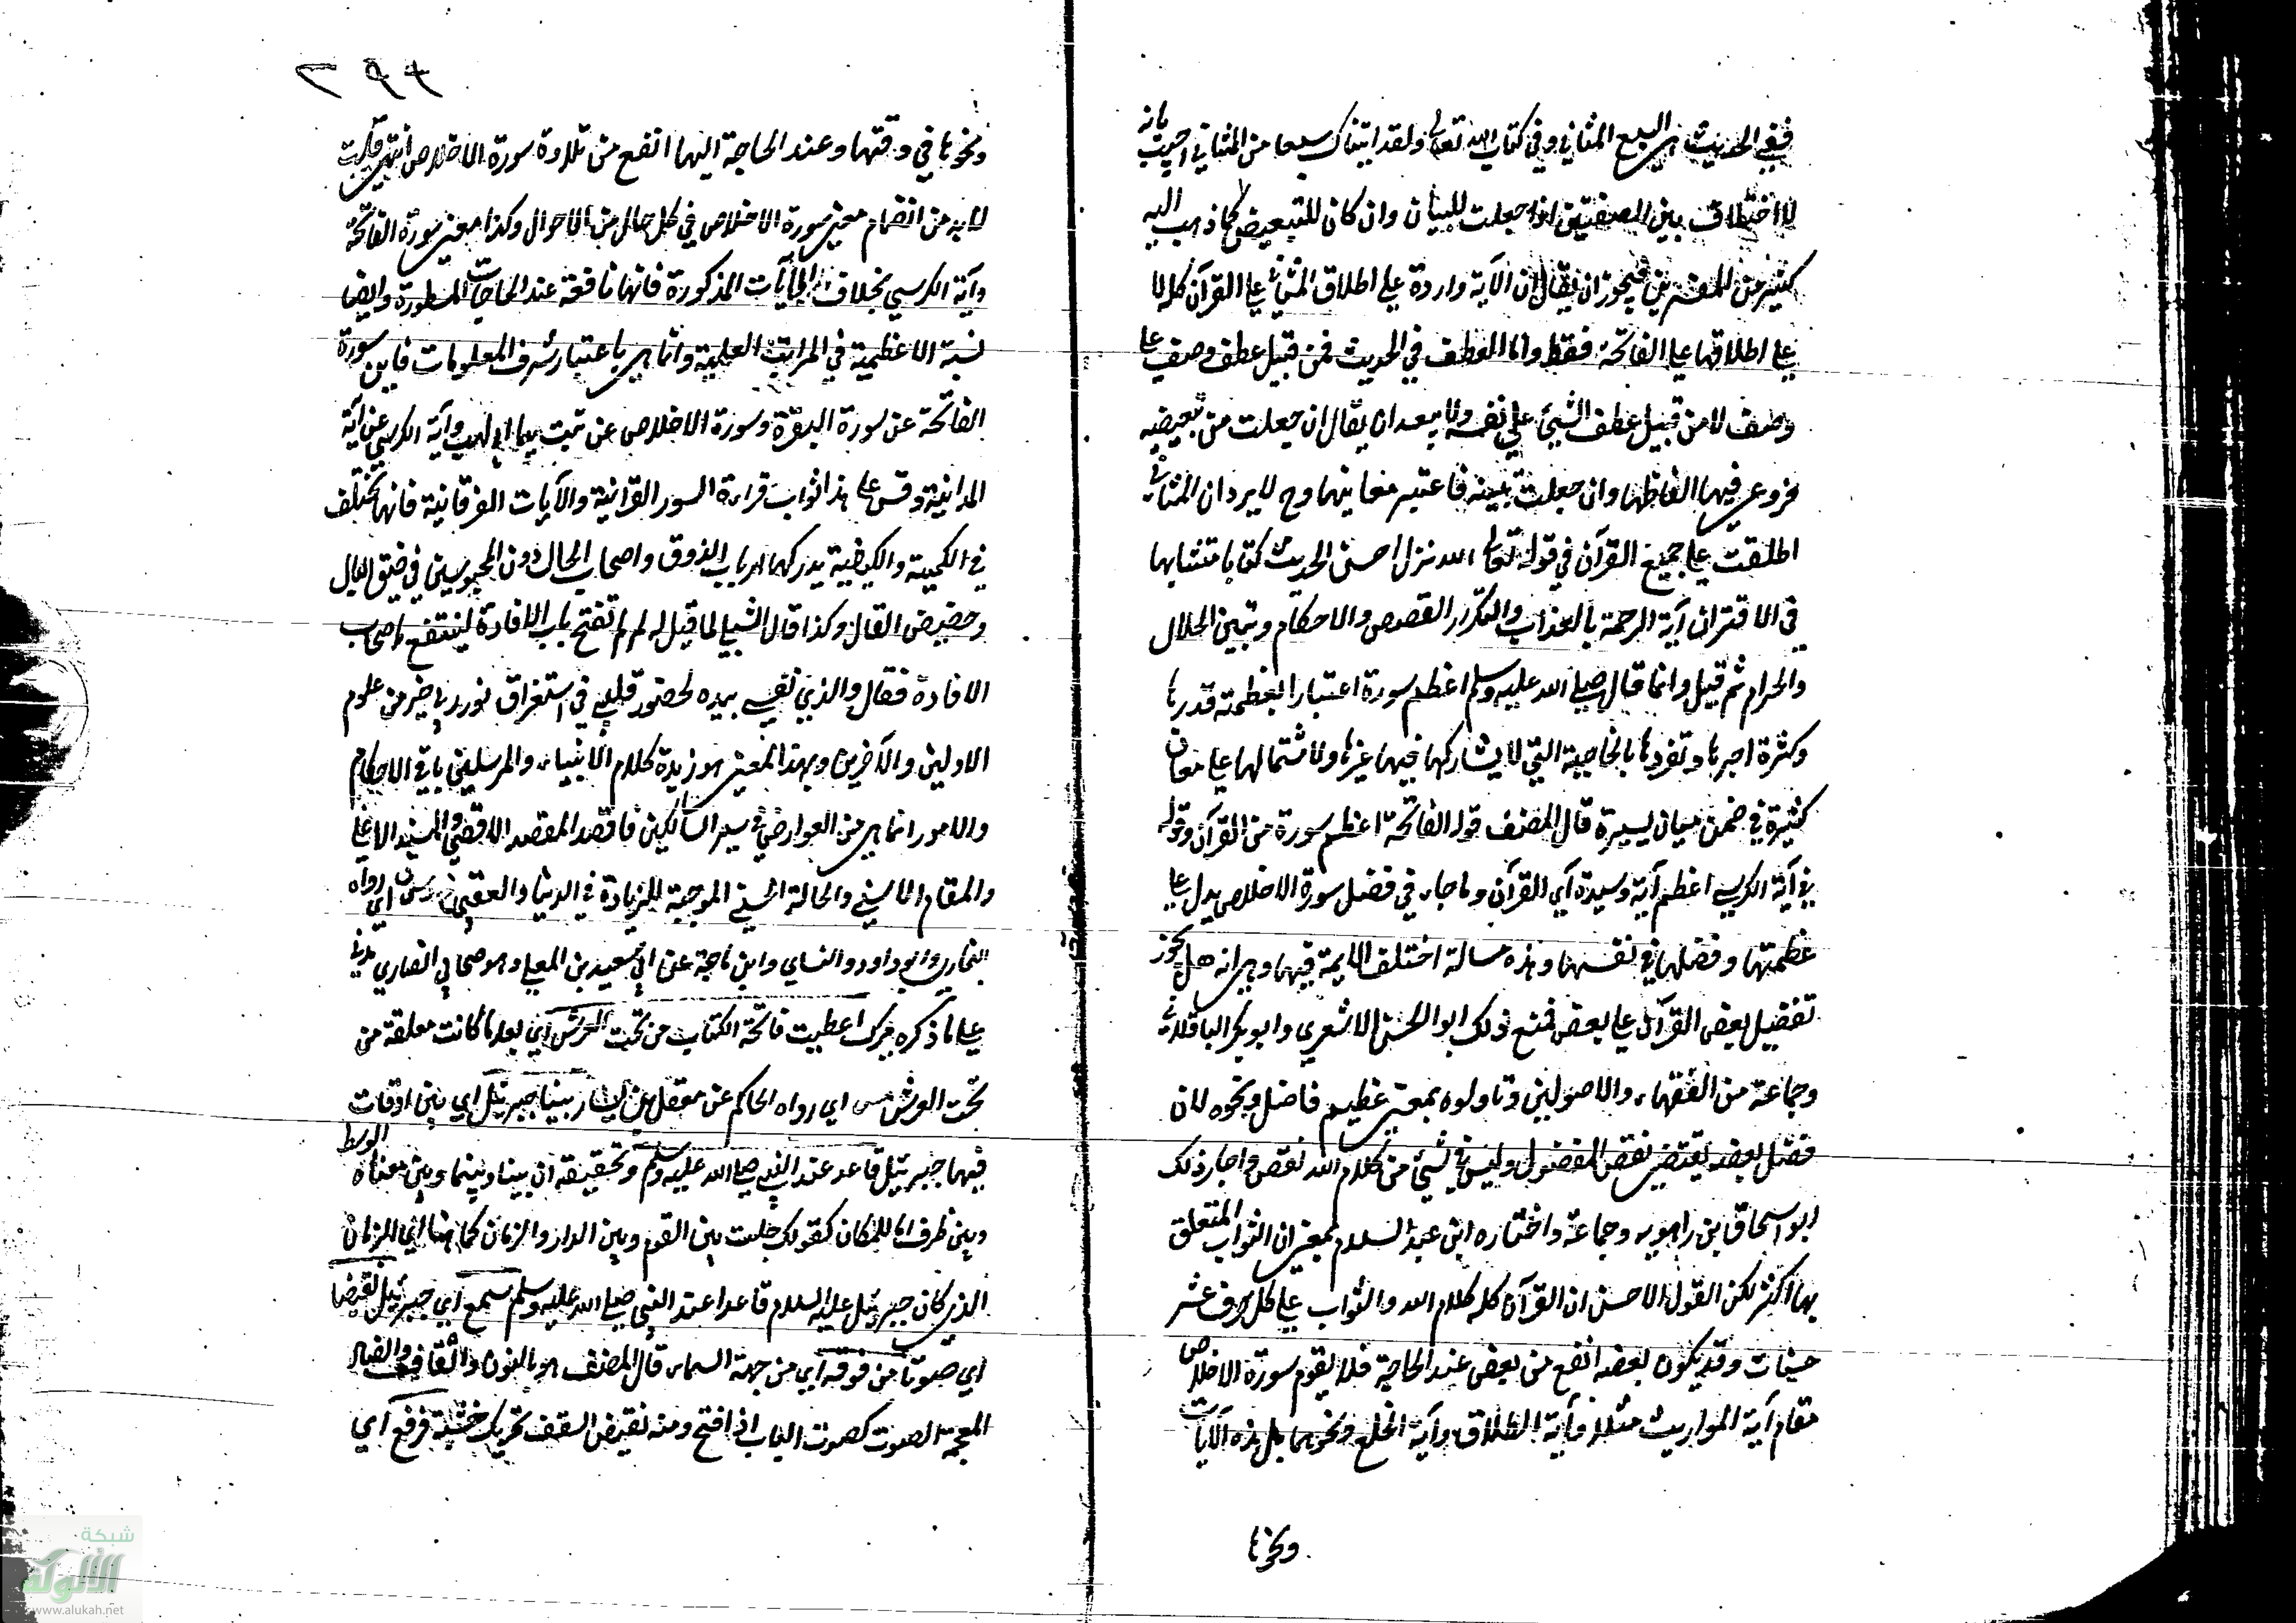 ففي الحديث هي السبع المثاني وفي كتاب الله تعالى ولقد اتيناك سبعا من المثاني اجيب بانه
لا اختلاف بين الصفتين اذا جعلت للبيان وان كان للتبعيض كما ذهب اليه
كثير من المفسرين فيجوز ان يقال ان الآية واردة على اطلاق المثاني على القرآن كله لا
على اطلاقها على الفاتحة فقط واما العطف في الحديث فمن قبيل عطف وصف على
وصف لا من قبيل عطف الشيئ على نفسه ولا يبعد ان يقال ان جعلت من تبعيضيه
فروعي فيها الفاظها وان جعلت مبينه فاعتبر معانيها وح لا يرد ان المثاني
اطلقت على جميع القرآن في قوله تعالى الله نزل احسن الحديث كتابا متشابها
في الاقتران آية الرحمة بالعذاب والتكرار القصص والاحكام وتبين الحلال
والحرام ثم قيل وانما قال صلى الله عليه وسلم اعظم سورة اعتبارا بعظمة قدرها
وكثرة اجرها وتفردها بالخاصية التي لا يشاركها فيها غيرها ولاشتمالها على معان
كثيرة في ضمن مبان يسيرة قال المصنف قوله الفاتحة اعظم سورة من القرآن وقوله
في آية الكرسي اعظم آية وسيدة آي القرآن وما جاء في فضل سورة الاخلاص يدل على
عظمتها وفضلها في نفسها وهذه مسالة اختلف الايمة فيها وهي انه هل يجوز
تفضيل بعض القرآن على بعض فمنع ذلك ابو الحسن الاشعري وابو بكر الباقلاني
وجماعة من الفقهاء والاصوليين وتاولوه بمعنى عظيم فاضل ونحوه لان
فضل بعضه يقتضي نقص المفضول وليس في شيئ من كلام الله نقص واجاز ذلك
ابو اسحاق بن راهويه وجماعة واختاره ابن عبد السلام بمعنى ان الثواب المتعلق
بها اكثر لكن القول الاحسن ان القرآن كله كلام الله والثواب على كل حرف عشر
حسنات وقد يكون بعضه انفع من بعض عند الحاجة فلا يقوم سورة الاخلاص
مقام آية المواريث مثلا وآية الطلاق وآية الخلع ونحوهما بل هذه الآيات
ونحوها
٢٩٢
ونحوها في وقتها وعند الحاجة اليها انفع من تلاوة سورة الاخلاص انتهى قلت
لا بد من انضمام معنى سورة الاخلاص في كل حال من الاحوال وكذا معنى سورة الفاتحة
وآية الكرسي بخلاف الآيات المذكورة فانها نافعة عند الحاجات المسطورة وايضا
نسبة الاعظمية في المراتب العلمية وانما هي باعتبار شرف المعلومات فاين سورة
الفاتحة عن سورة البقرة وسورة الاخلاص عن تبت يدا ابي لهب وآية الكرسي عن آية
المداينة وقس على هذا ثواب قراءة السور القرانية والآيات الفرقانية فانها تختلف
في الكمية والكيفية يدركها ارباب الذوق واصحاب الحال دون المحبوسين في ضيق البال
وحضيض القال وكذا قال الشبلي لما قيل له لم لم تفتح باب الافادة لينتفع اصحاب
الافادة فقال والذي نفسي بيده لحضور قلبي في استغراق نور ربي خير من علوم
الاولين والآخرين وبهذا المعنى هو زبدة كلام الانبياء والمرسلين باقي الاحكام
والامور انما هي من العوارض في سير السالكين فاقصد المقصد الاقصى والمسند الاعلى
والمقام الاسنى والحالة الحسنى الموجبة للزيادة في الدنيا والعقبى اي رواه
البخاري وابو داود والنساي وابن ماجة عن ابي سعيد بن المعلى وهو صحابي انصاري مدني
على ما ذكره ميرك اعطيت فاتحة الكتاب من تحت العرش اي بعد ما كانت معلقة من
تحت العرش مس اي رواه الحاكم عن معقل بن يسار بينا جبرئيل اي بين اوقات
فيها جبرئيل قاعد عند النبي صلى الله عليه وسلم وتحقيقه ان بينا وبينما وبين معناه الوسط
وبين ظرف اما للمكان كقولك جلست بين القوم وبين الدار والزمان كما هنا اي الزمان
الذي كان جبرئيل عليه السلام قاعدا عند النبي صلى الله عليه وسلم سمع اي جبرئيل نقيضا
اي صوتا من فوقه اي من جهة السماء قال المصنف هو بالنون والقاف والضاد
المعجمة الصوت كصوت الباب اذا فتح ومنه نقيض السقف تحريك خشبه فرفع اي
شبكة
الألوكة
www.alukah.net